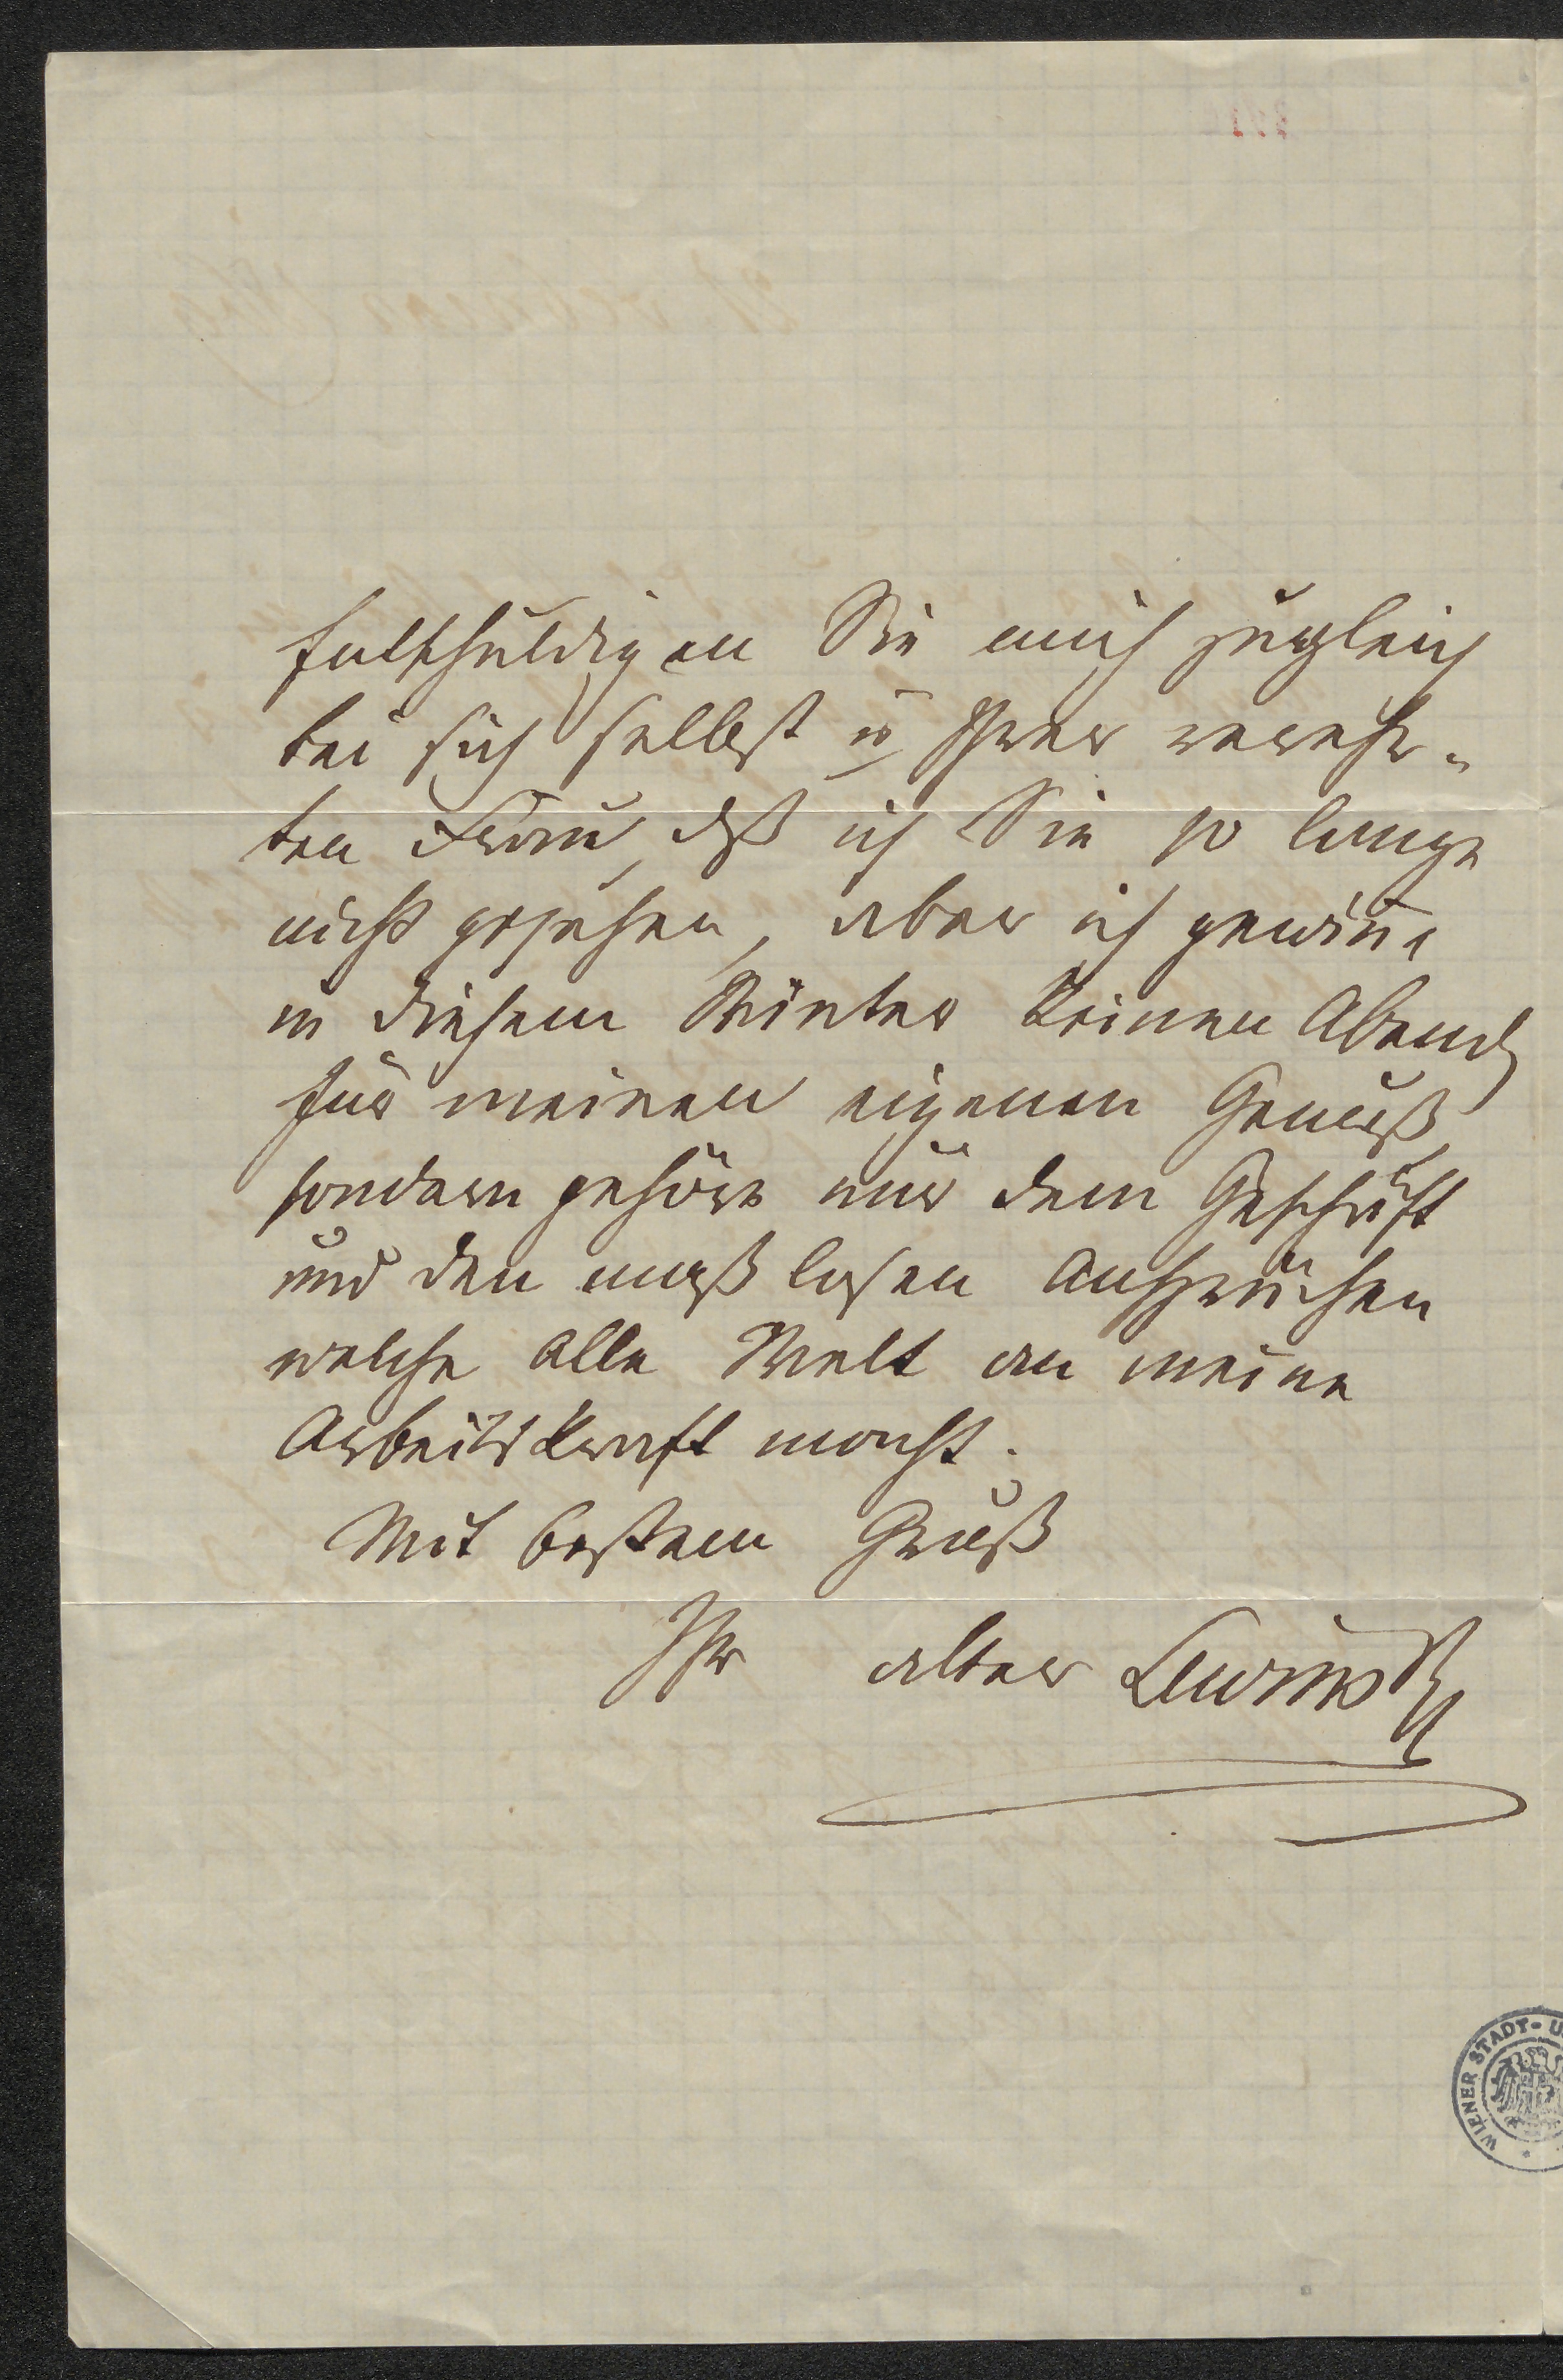 Entschuldigen Sie mich zugleich
bei sich selbst u Ihrer verehr-
ten Frau, dß ich Sie so lange
nicht gesehen, aber ich gewin̄e
in diesem Winter keinen Abend
für meinen eigenen Genuß
sondern gehöre nur dem Geschäft
und den maßlosen Ansprüchen
welche alle Welt an meine
Arbeitskraft macht.
Mit bestem Gruß
Ihr alter Lewinsky
WIENER STADT- U